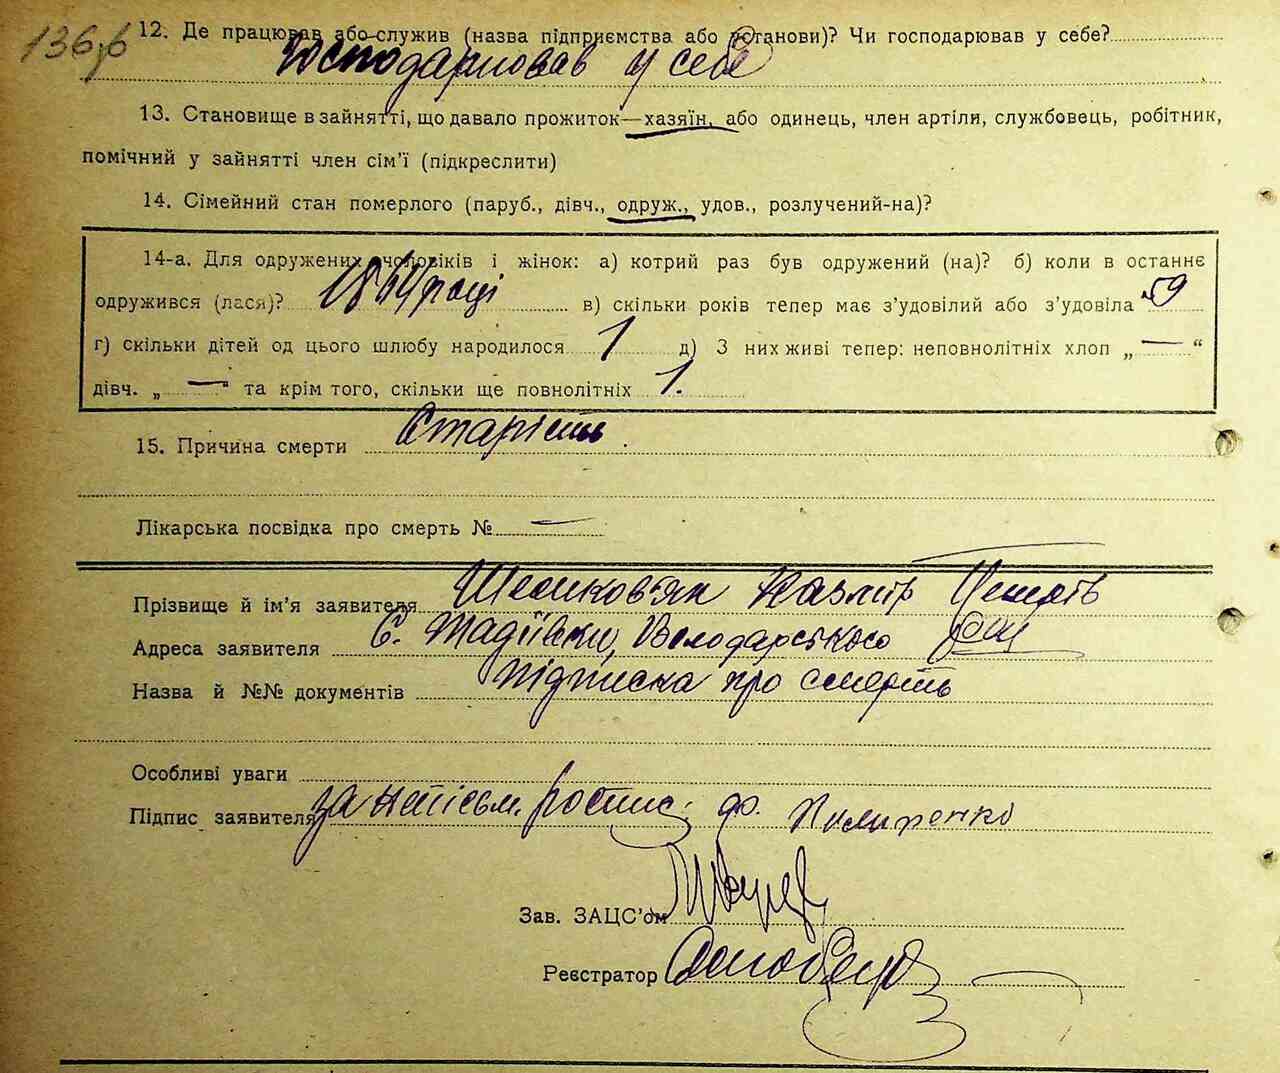 136б
12. Де працював або служив (назва підприємства або установи)? Чи господарював у себе?
Господарював у себе
13. Становище в зайнятті, що давало прожиток—хазяїн, або одинець, член артіли, службовець, робітник,
помічний у зайнятті член сім'ї (підкреслити)
14. Сімейний стан померлого (паруб., дівч., одруж., удов., розлучений-на)?
14-а. Для одружених чоловіків і жінок: а) котрий раз був одружений (на)? б) коли в останнє
одружився (лася)? 1864 році в) скільки років тепер має з'удовілий або з'удовіла 59
г) скільки дітей од цього шлюбу народилося 1 д) З них живі тепер: неповнолітніх хлоп „ — “
дівч. „ — “ та крім того, скільки ще повнолітніх 1.
15. Причина смерти Старість.
Лікарська посвідка про смерть № —
Прізвище й ім'я заявителя Казмір
Адреса заявителя С. Тадіївки, Володарського
Назва й №№ документів Підписка про смерть
Особливі уваги
Підпис заявителя за непісьм. роспис.
Зав. ЗАЦС'ом
Реєстратор